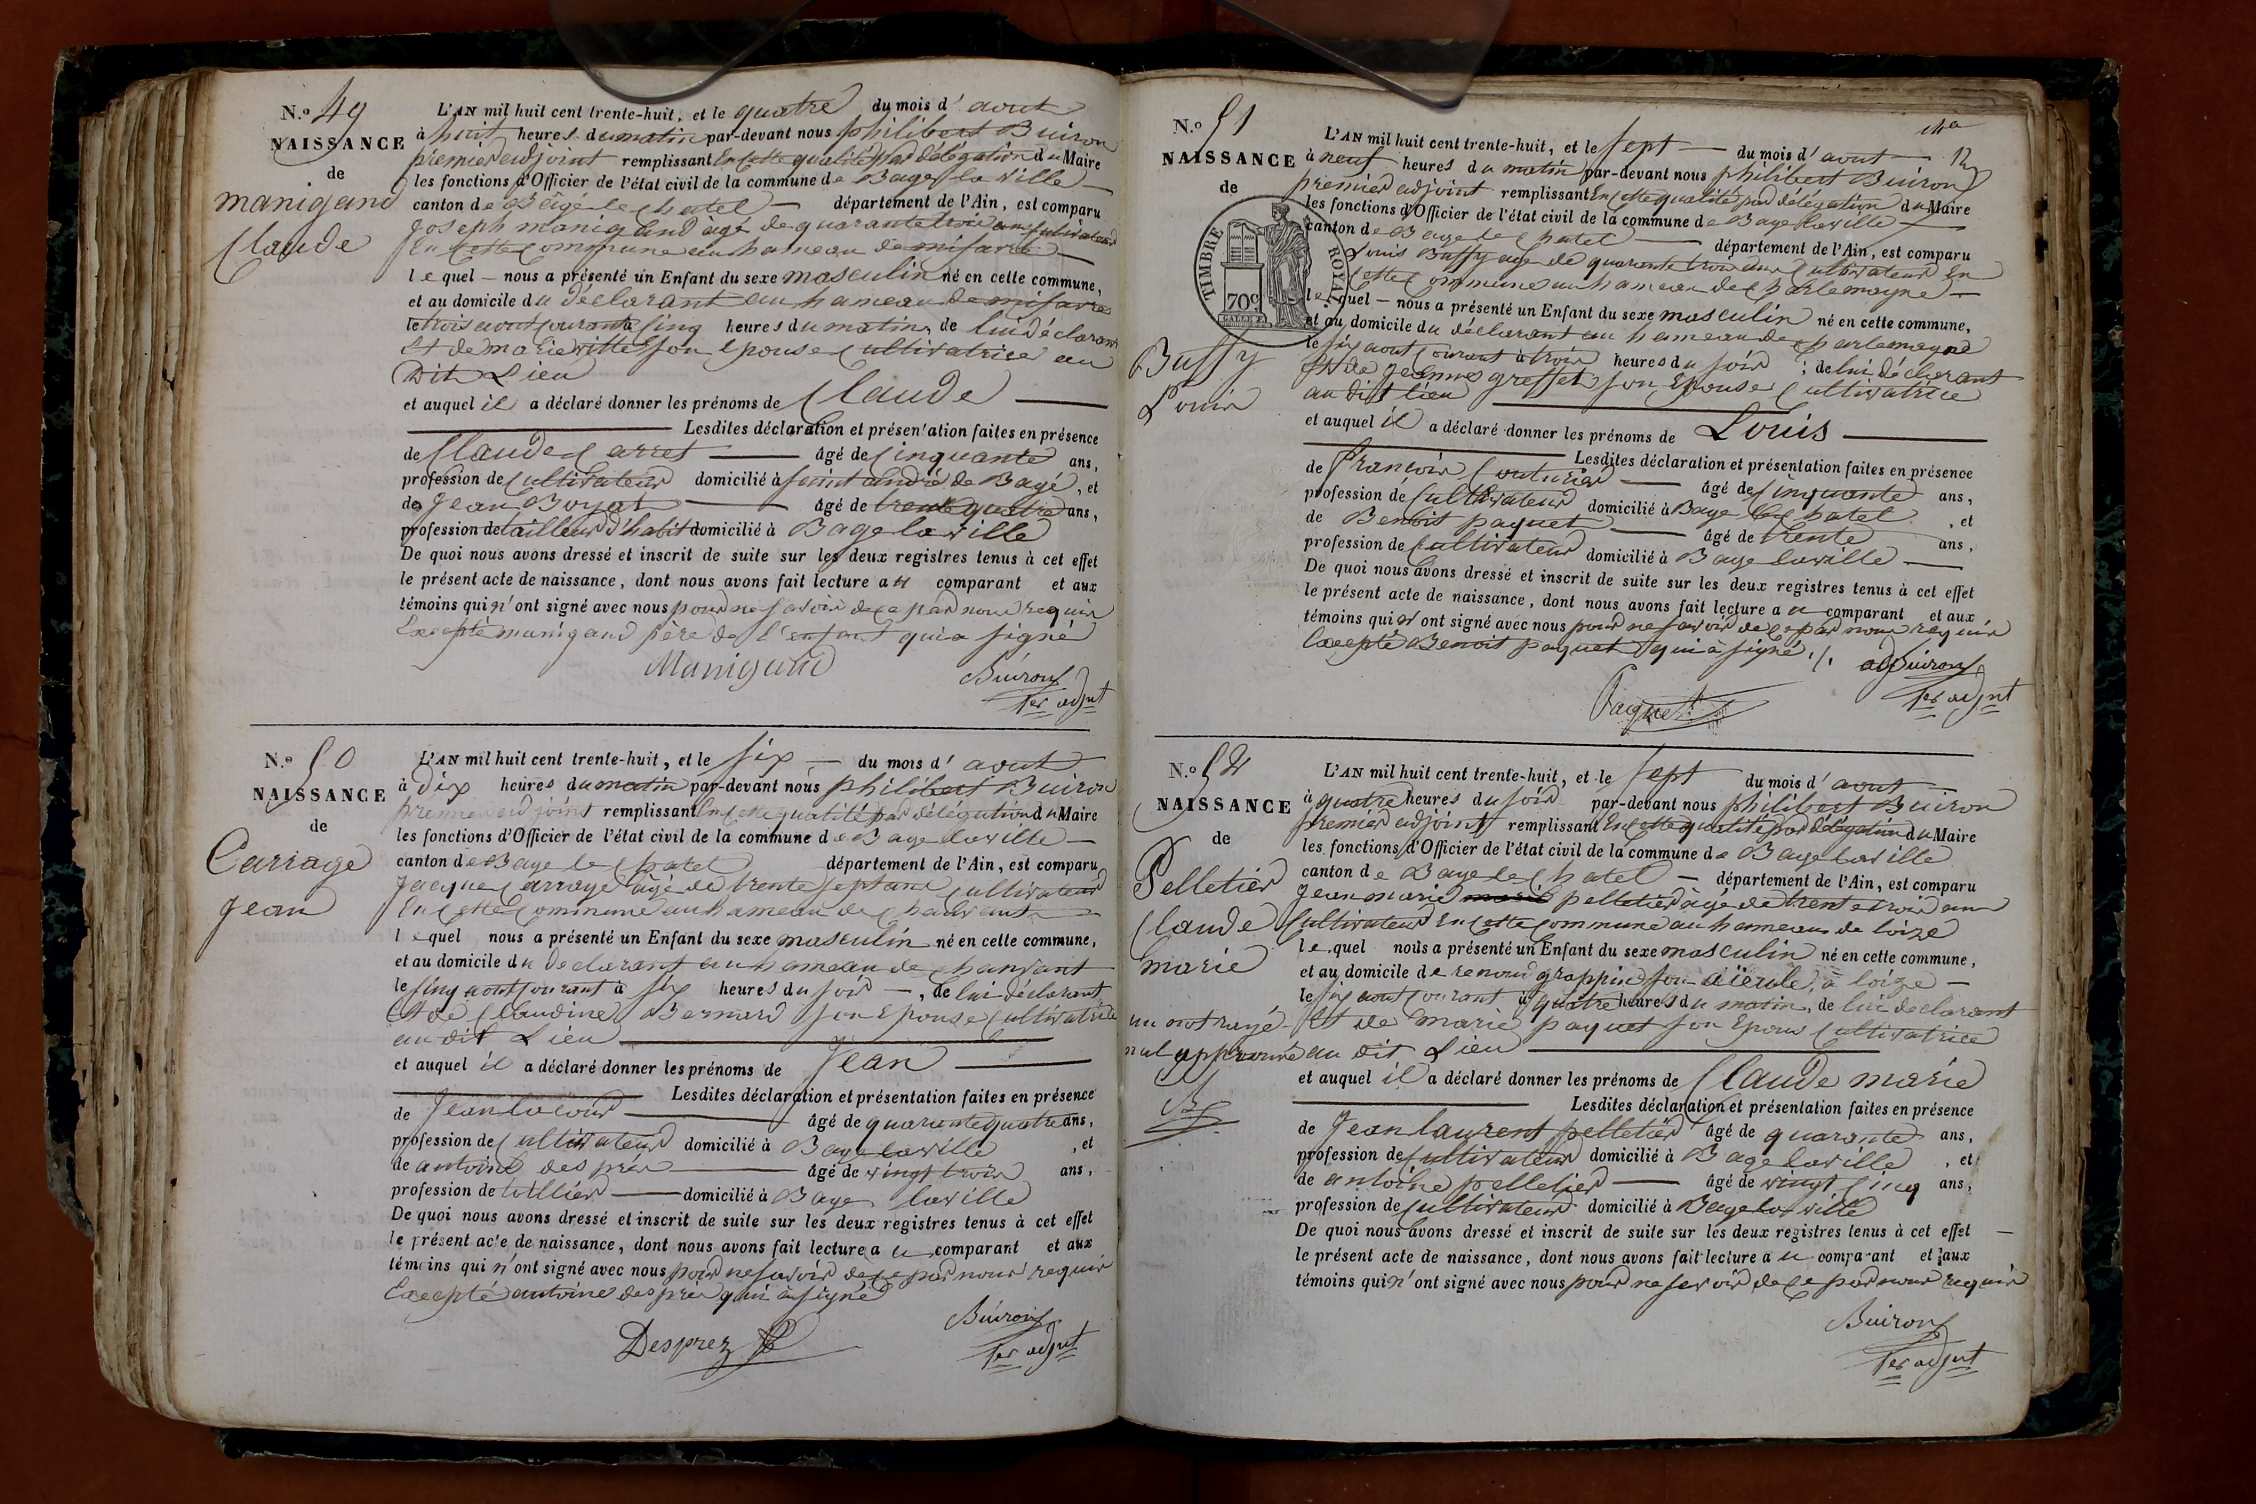 N.o 49
NAISSANCE
de
manigand
Claude
L'AN mil huit cent trente-huit, et le quatre du mois d'aout
à huit heures du matin par-devant nous philibert Buiron
premier adjoint remplissant En cette qualité par délégation du Maire
les fonctions d'Officier de l'état civil de la commune de Bagé la ville
canton de Bagé le Chatel département de l'Ain, est comparu
Joseph manigand agé de quarante trois ans cultivateur
En cette Commune au hameau de
lequel nous a présenté un Enfant du sexe masculin né en cette commune,
et au domicile du déclarant au hameau de
le trois aout courant à cinq heures du matin, de lui déclarant
et de marie son épouse Cultivatrice au
Dit Lieu
et auquel il a déclaré donner les prénoms de Claude
Lesdites déclaration et présentation faites en présence
de Claude Carret âgé de Cinquante ans,
profession de Cultivateur domicilié à saint andré de Bagé, et
de Jean Boyat âgé de trente quatre ans,
profession de tailleur d'habit domicilié à Bagé la ville
De quoi nous avons dressé et inscrit de suite sur les deux registres tenus à cet effet
le présent acte de naissance, dont nous avons fait lecture au comparant et aux
témoins qui n'ont signé avec nous pour ne savoir de ce par nous requis
Excepté manigand père de l'enfant qui a signé
Manigand Buiron
1er adjnt
N.o 50
NAISSANCE
de
Carriage
Jean
L'AN mil huit cent trente-huit, et le six du mois d'aout
à Dix heures du matin par-devant nous philibert Buiron
premier adjoint remplissant En cette qualité par délégation du Maire
les fonctions d'Officier de l'état civil de la commune de Bage la ville
canton de Bage le Chatel département de l'Ain, est comparu
Jacque Carrage âgé de trente sept ans Cultivateur
En Cette Commune au hameau de
lequel nous a présenté un Enfant du sexe masculin né en cette commune,
et au domicile du declarant au hameau de
le cinq aout courant à six heures du soir, de lui déclarant
Et de Claudine Bernard son Epouse Cultivatrice
au dit Lieu
et auquel il a déclaré donner les prénoms de Jean
Lesdites déclaration et présentation faites en présence
de Jean lacour âgé de quarante quatre ans,
profession de Cultivateur domicilié à Bage la ville, et
de antoine des prés âgé de vingt trois ans,
profession de domicilié à Bage la ville
De quoi nous avons dressé et inscrit de suite sur les deux registres tenus à cet effet
le présent acte de naissance, dont nous avons fait lecture au comparant et aux
témoins qui n'ont signé avec nous pour ne savoir de ce par nous requis
Excepté antoine des prés qui a signé
Desprez Buiron
1er adjnt
N.o 51
NAISSANCE
de
TIMBRE ROYAL
70c
Buffy
Louis
12
L'AN mil huit cent trente-huit, et le sept du mois d'aout
à neuf heures du matin par-devant nous philibert Buiron
premier adjoint remplissant En cette qualité par délégation du Maire
les fonctions d'Officier de l'état civil de la commune de Bage la ville
canton de Bage le Chatel département de l'Ain, est comparu
Louis Buffy age de quarante trois ans Cultivateur En
Cette Commune au hameau de Charlemagne
lequel nous a présenté un Enfant du sexe masculin né en cette commune,
et au domicile du déclarant au hameau de Charlemagne
le six aout courant à trois heures du soir, de lui déclarant
Et de Jeanne greffet son Epouse Cultivatrice
au dit lieu
et auquel il a déclaré donner les prénoms de Louis
Lesdites déclaration et présentation faites en présence
de francois Couturier âgé de Cinquante ans,
profession de Cultivateur domicilié à Bage le Chatel, et
de Benoit paquet âgé de trente ans,
profession de Cultivateur domicilié à Bage la ville
De quoi nous avons dressé et inscrit de suite sur les deux registres tenus à cet effet
le présent acte de naissance, dont nous avons fait lecture au comparant et aux
témoins qui n'ont signé avec nous pour ne savoir de ce par nous requis
Excepté Benoit paquet qui a signé./.
Paquet Buiron
1er adjnt
N.o 52
NAISSANCE
de
Pelletier
Claude
marie
un mot rayé
nul approuvé
B
L'AN mil huit cent trente-huit, et le sept du mois d'aout
à quatre heures du soir par-devant nous philibert Buiron
premier adjoint remplissant En cette qualité par délégation du Maire
les fonctions d'Officier de l'état civil de la commune de Bage la ville
canton de Bage le Chatel département de l'Ain, est comparu
Jean marie marie pelletier âgé de trente trois ans
Cultivateur En Cette Commune au hameau de loize
lequel nous a présenté un Enfant du sexe masculin né en cette commune,
et au domicile de grappin son aïeule, à loize
le six aout courant à quatre heures du matin, de lui declarant
Et de marie paquet son Epouse Cultivatrice
au dit Lieu
et auquel il a déclaré donner les prénoms de Claude marie
Lesdites déclaration et présentation faites en présence
de Jean laurent pelletier âgé de quarante ans,
profession de Cultivateur domicilié à Bage la ville, et
de antoine pelletier âgé de vingt Cinq ans,
profession de Cultivateur domicilié à Bage la ville
De quoi nous avons dressé et inscrit de suite sur les deux registres tenus à cet effet
le présent acte de naissance, dont nous avons fait lecture au comparant et aux
témoins qui n'ont signé avec nous pour ne savoir de ce par nous requis
Buiron
1er adjnt